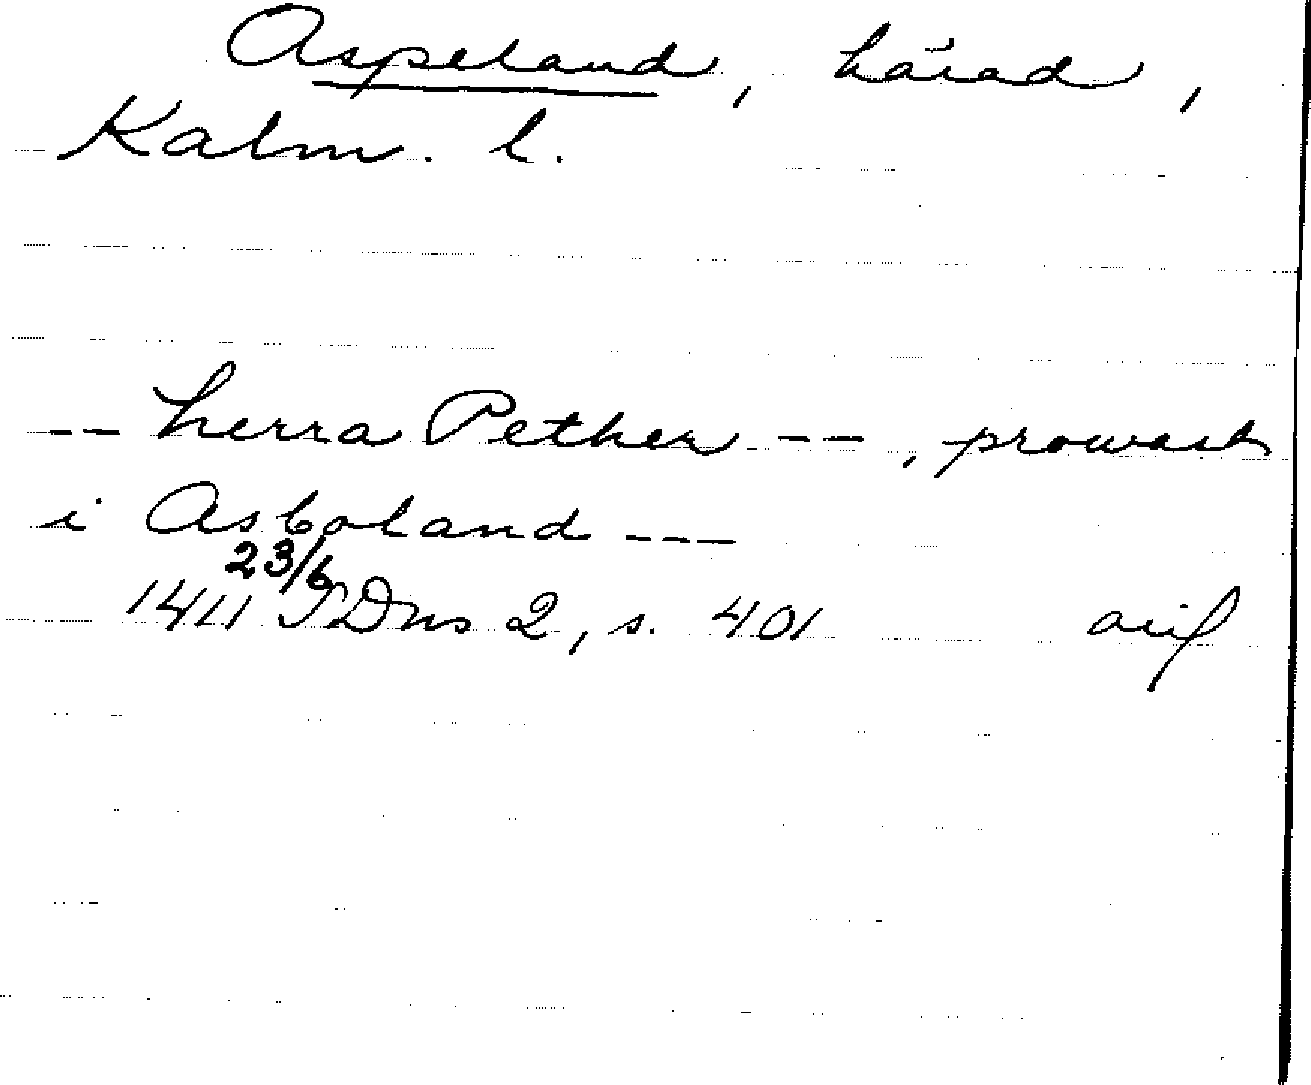 Aspeland, härad,
Kalm. l.
-- herra Pether --, prowast
i Asboland ---
1411 23/6 SDns 2, s. 401 avskr